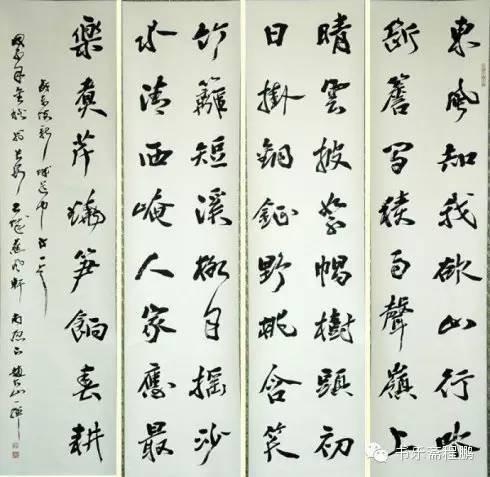 東風知我欲山行吹
斷簷間積雨聲嶺上
晴雲披絮帽樹頭初
日掛銅鉦野桃含笑
竹籬短溪柳自搖沙
水清西崦人家應最
樂煮芹燒筍餉春耕
城道中
书乐斋程鹏